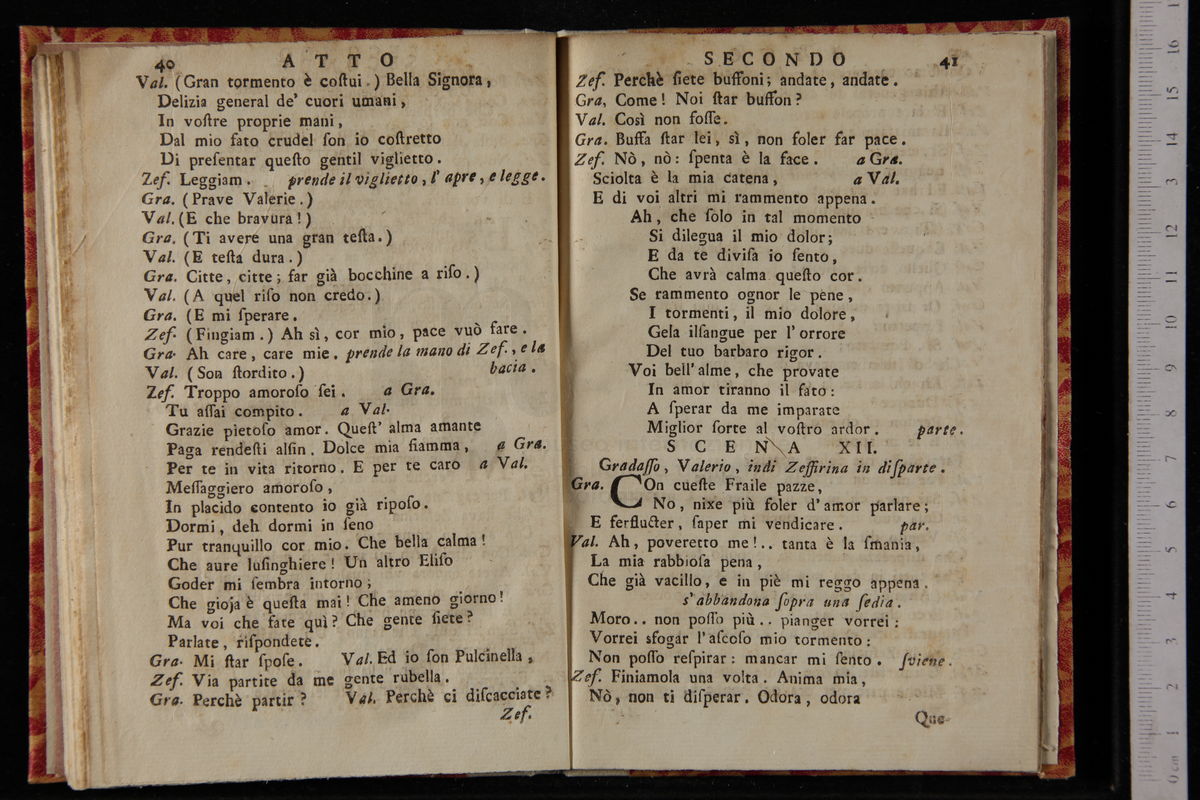 40 ATTO
Val. (Gran tormento è coſtui.) Bella Signora,
Delizia general de' cuori umani,
In voſtre proprie mani,
Dal mio fato crudel ſon io coſtretto
Di preſentar queſto gentil viglietto.
Zef. Leggiam. prende il viglietto, l' apre, e legge.
Gra. (Prave Valerie.)
Val. (E che bravura!)
Gra. (Ti avere una gran teſta.)
Val. (E teſta dura.)
Gra. Citte, citte; far già bocchine a riſo.)
Val. (A quel riſo non credo.)
Gra. (E mi ſperare.
Zef. (Fingiam.) Ah sì, cor mio, pace vuò fare.
Gra. Ah care, care mie. prende la mano di Zef., e la
Val. (Son ſtordito.) bacia.
Zef. Troppo amoroſo ſei. a Gra.
Tu aſſai compito. a Val.
Grazie pietoſo amor. Queſt' alma amante
Paga rendeſti alfin. Dolce mia fiamma, a Gra.
Per te in vita ritorno. E per te caro a Val.
Meſſaggiero amoroſo,
In placido contento io già ripoſo.
Dormi, deh dormi in ſeno
Pur tranquillo cor mio. Che bella calma!
Che aure luſinghiere! Un altro Eliſo
Goder mi ſembra intorno;
Che gioja è queſta mai! Che ameno giorno!
Ma voi che fate quì? Che gente ſiete?
Parlate, riſpondete.
Gra. Mi ſtar ſpoſe. Val. Ed io ſon Pulcinella,
Zef. Via partite da me gente rubella.
Gra. Perchè partir? Val. Perchè ci diſcacciate?
Zef.
SECONDO 41
Zef. Perchè ſiete buffoni; andate, andate.
Gra, Come! Noi ſtar buffon?
Val. Così non foſſe.
Gra. Buffa ſtar lei, sì, non foler far pace.
Zef. Nò, nò: ſpenta è la face. a Gra.
Sciolta è la mia catena, a Val.
E di voi altri mi rammento appena.
Ah, che ſolo in tal momento
Si dilegua il mio dolor;
E da te diviſa io ſento,
Che avrà calma queſto cor.
Se rammento ognor le pene,
I tormenti, il mio dolore,
Gela ilſangue per l'orrore
Del tuo barbaro rigor.
Voi bell'alme, che provate
In amor tiranno il fato:
A ſperar da me imparate
Miglior ſorte al voſtro ardor. parte.
SCENA XII.
Gradaſſo, Valerio, indi Zeffirina in diſparte.
Gra. COn cueſte Fraile pazze,
No, nixe più foler d'amor parlare;
E ferfluƈter, ſaper mi vendicare. par.
Val. Ah, poveretto me!.. tanta è la ſmania,
La mia rabbioſa pena,
Che già vacillo, e in piè mi reggo appena.
s'abbandona ſopra una ſedia.
Moro.. non poſſo più.. pianger vorrei:
Vorrei sfogar l'aſcoſo mio tormento:
Non poſſo reſpirar: mancar mi ſento. ſviene.
Zef. Finiamola una volta. Anima mia,
Nò, non ti diſperar. Odora, odora
Que-